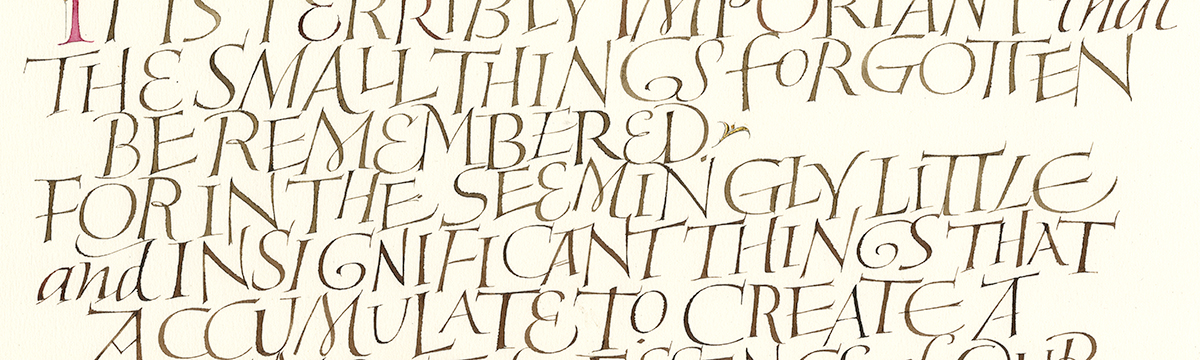 IT IS TERRIBLY IMPORTANT that
THE SMALL THINGS FORGOTTEN
BE REMEMBERED.
FOR IN THE SEEMINGLY LITTLE
and INSIGNIFICANT THINGS THAT
ACCUMULATE TO CREATE A
ESSENCE of OUR